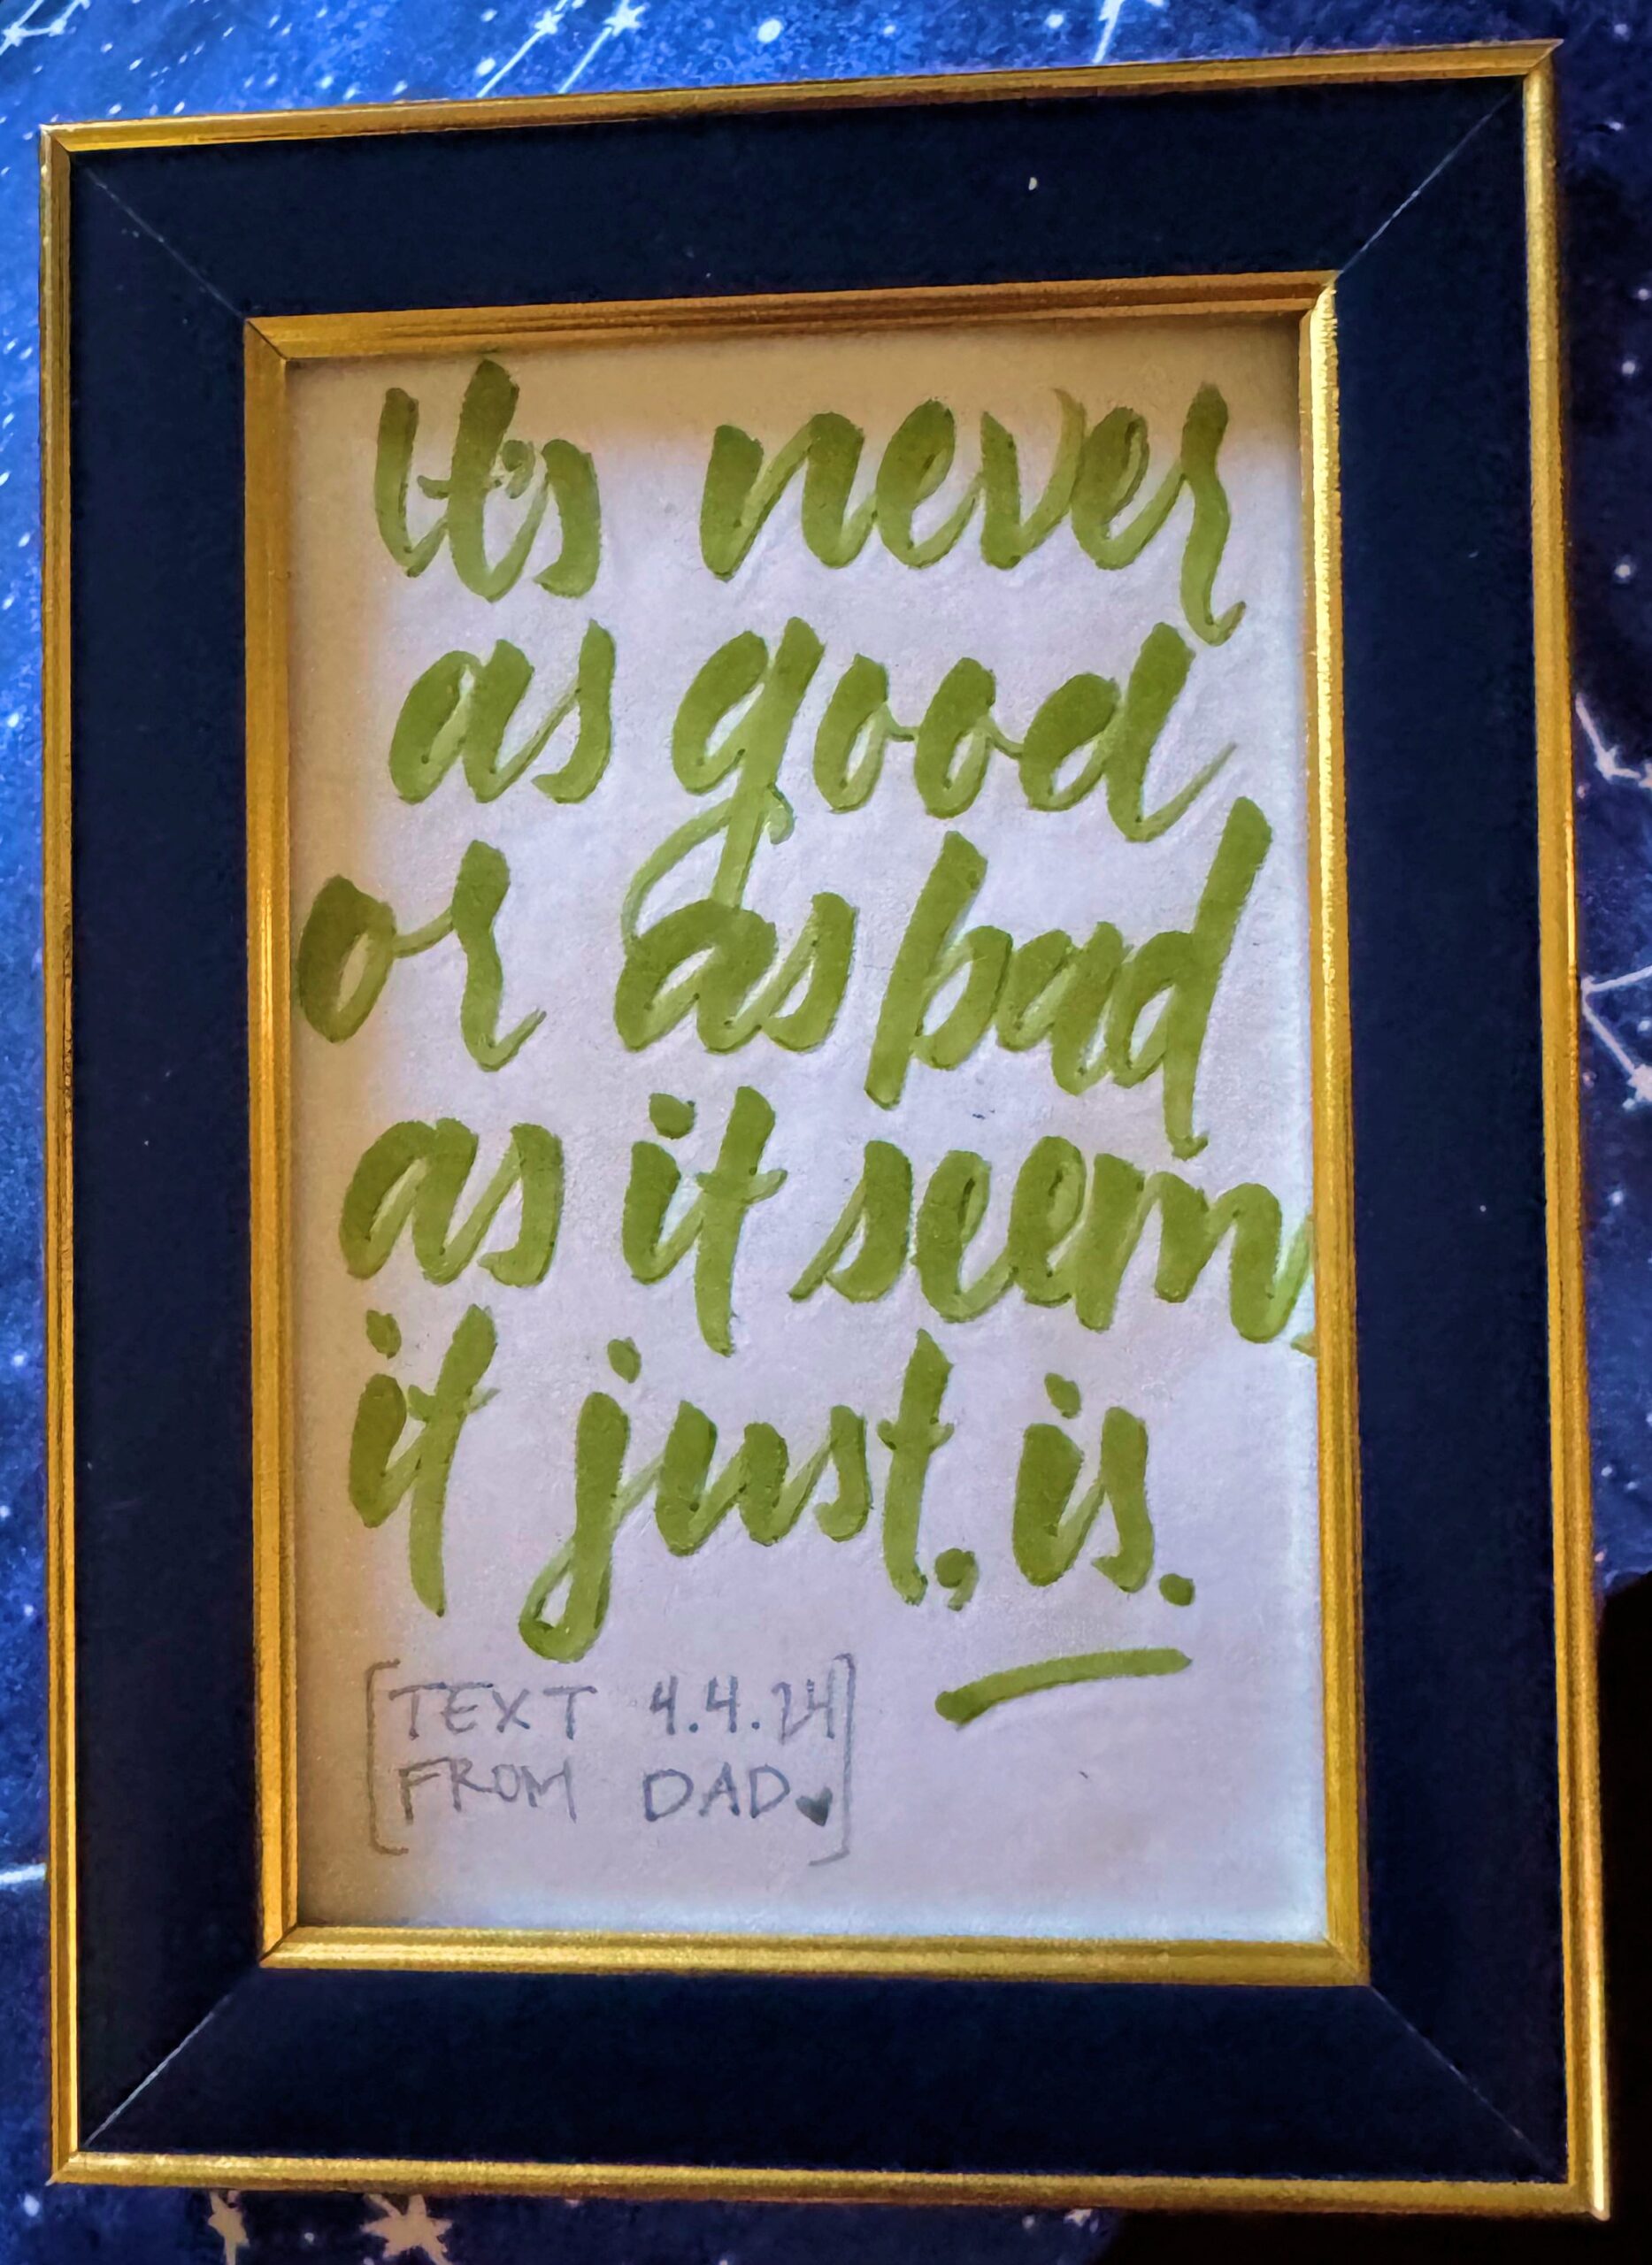 It's never
as good
or as bad
as it seems
it just, is.
[TEXT 4.4.24
FROM DAD♥]